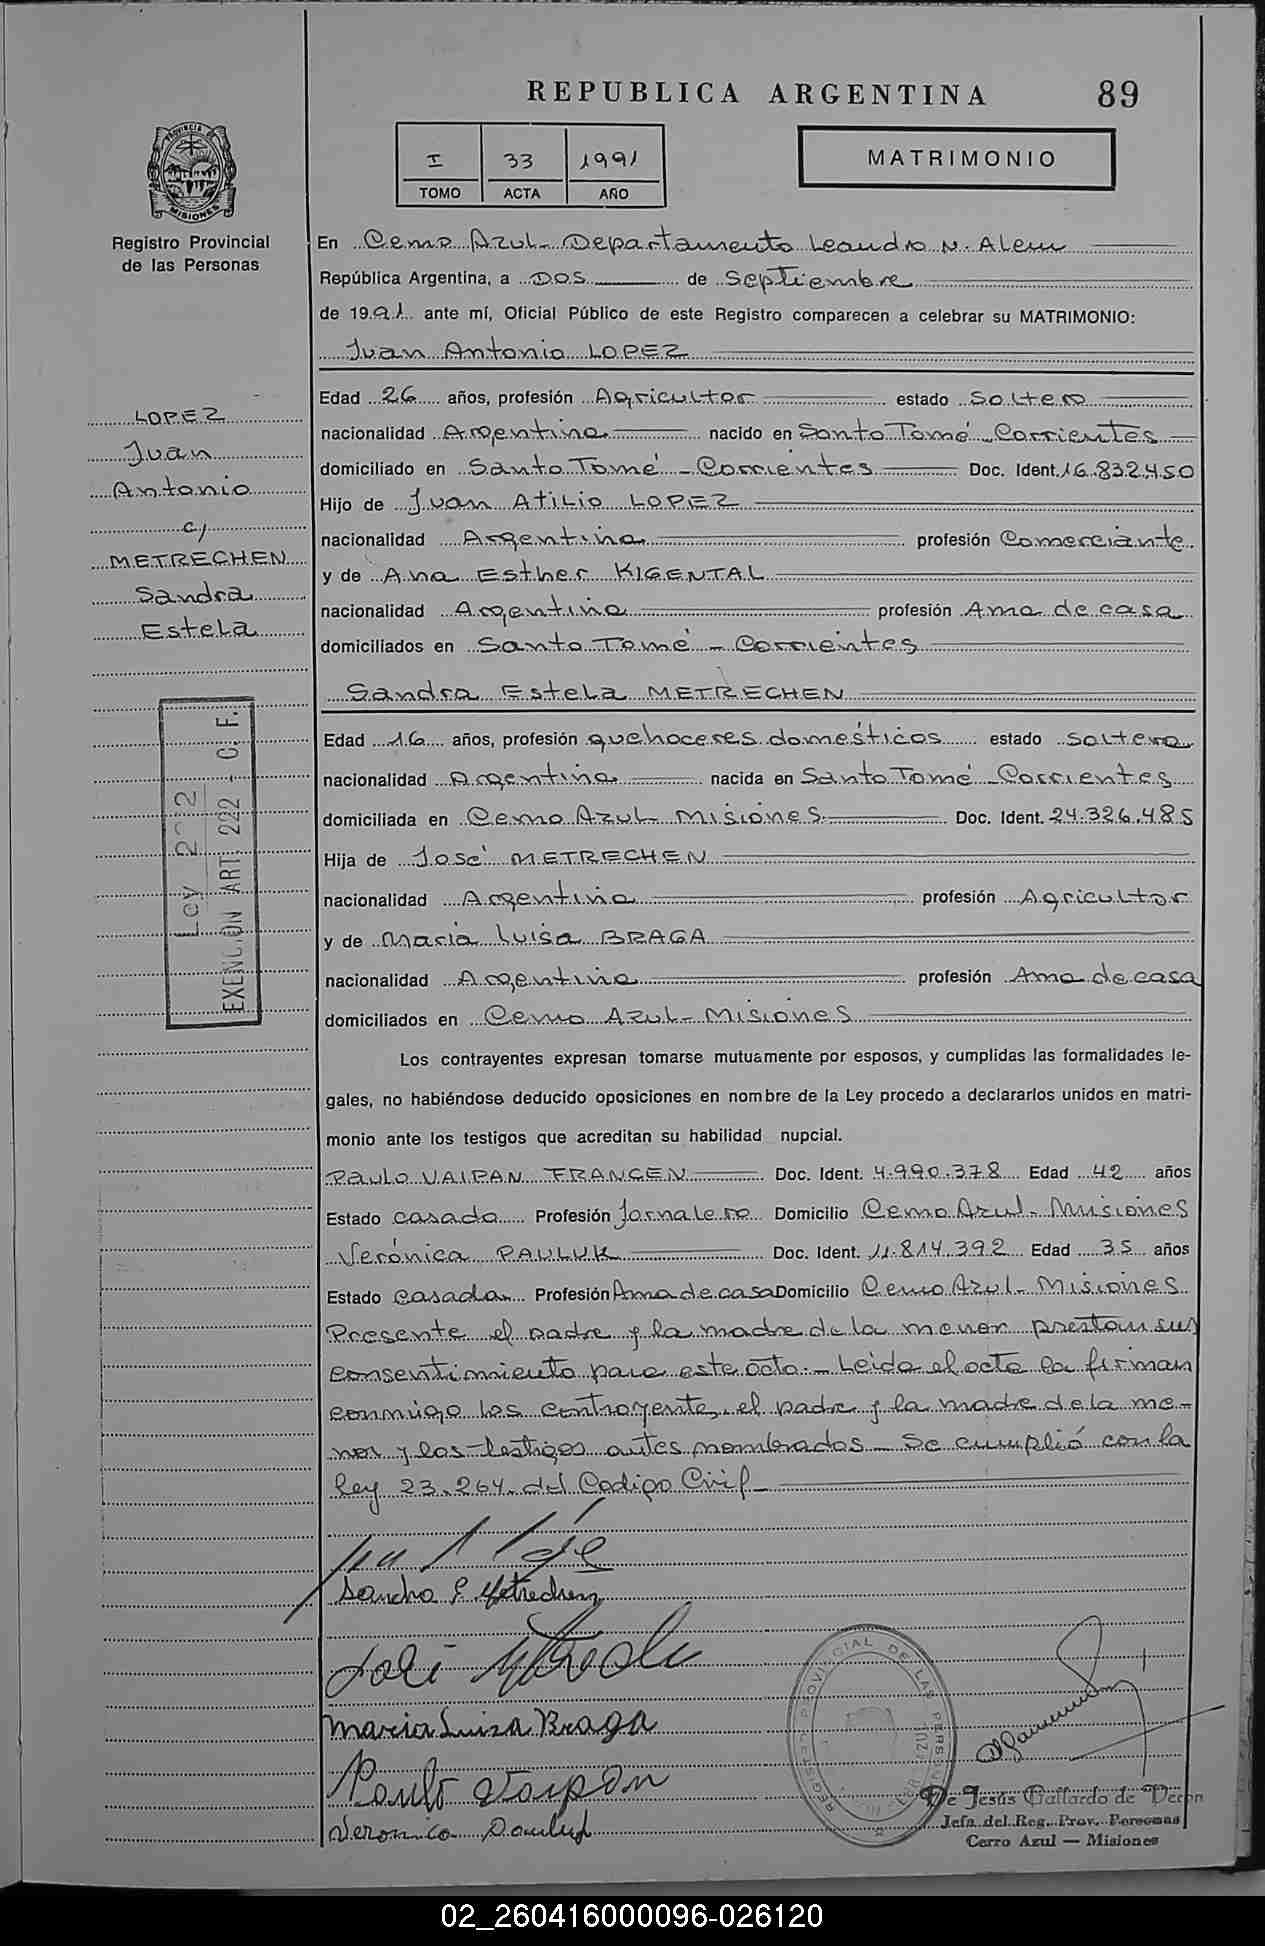 REPUBLICA ARGENTINA
89
I 33 1991
TOMO ACTA AÑO
MATRIMONIO
PROVINCIA DE
MISIONES
Registro Provincial
de las Personas
LOPEZ
Juan
Antonio
c/
METRECHEN
Sandra
Estela
Ley 2 2
EXENCION ART. 222 - C.F.
En Cerro Azul - Departamento Leandro N. Alem
República Argentina, a DOS de Septiembre
de 1991 ante mí, Oficial Público de este Registro comparecen a celebrar su MATRIMONIO:
Juan Antonio LOPEZ
Edad 26 años, profesión Agricultor estado Soltero
nacionalidad Argentina nacido en Santo Tomé - Corrientes
domiciliado en Santo Tomé - Corrientes Doc. Ident. 16.832.450
Hijo de Juan Atilio LOPEZ
nacionalidad Argentina profesión Comerciante
y de Ana Esther KIGENTAL
nacionalidad Argentina profesión Ama de casa
domiciliados en Santo Tomé - Corrientes
Sandra Estela METRECHEN
Edad 16 años, profesión quehaceres domésticos estado soltera
nacionalidad Argentina nacida en Santo Tomé - Corrientes
domiciliada en Cerro Azul - Misiones Doc. Ident. 24.326.485
Hija de José METRECHEN
nacionalidad Argentina profesión Agricultor
y de Maria Luisa BRAGA
nacionalidad Argentina profesión Ama de casa
domiciliados en Cerro Azul - Misiones
Los contrayentes expresan tomarse mutuamente por esposos, y cumplidas las formalidades le-
gales, no habiéndose deducido oposiciones en nombre de la Ley procedo a declararlos unidos en matri-
monio ante los testigos que acreditan su habilidad nupcial.
Paulo VAIPAN FRANCEN Doc. Ident. 4.990.378 Edad 42 años
Estado casado Profesión Jornalero Domicilio Cerro Azul - Misiones
Verónica PAULUK Doc. Ident. 11.814.392 Edad 35 años
Estado casada Profesión Ama de casa Domicilio Cerro Azul - Misiones
Presente el padre y la madre de la menor prestan su
consentimiento para este acto. - Leida el acta la firman
conmigo los contrayentes, el padre y la madre de la me-
nor y los testigos antes nombrados - Se cumplió con la
ley 23.264 del Codigo Civil -
Sandra E. Metrechen
José
Maria Luiza Braga
Paulo Vaipan
Veronica Pauluk
REGISTRO PROVINCIAL DE LAS PERSONAS
De Jesús Gallardo de Decon
Jefa del Reg. Prov. Personas
Cerro Azul — Misiones
02_260416000096-026120